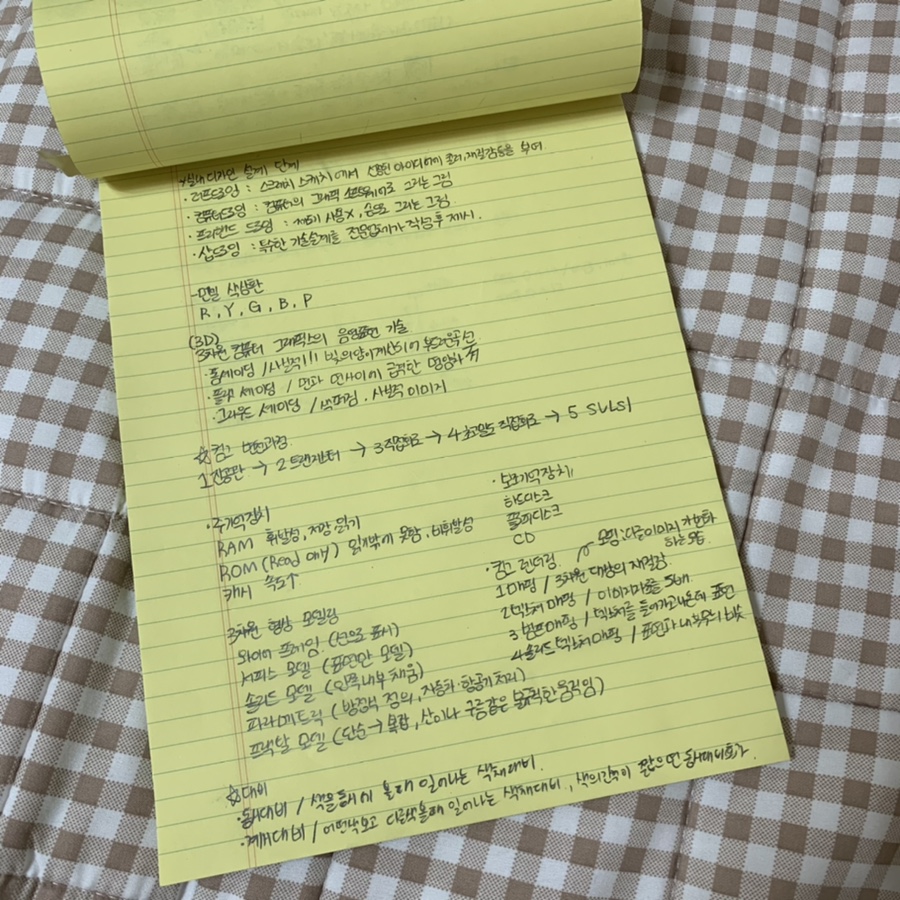 실내디자인 설계 단계
· 러프드로잉 : 스크래치 스케치에서 선정된 아이디어에 컬러, 재질감등을 부여.
· 컴퓨터드로잉 : 컴퓨터의 그래픽 소프트웨어로 그리는 그림
· 프리핸드 드로잉 : 제도기 사용X, 손으로 그리는 그림
· 샵드로잉 : 특수한 기술설계를 전문업체가 작성 후 제시.
-먼셀 색상환
R, Y, G, B, P
(3D)
3차원 컴퓨터 그래픽스의 음영표현 기술
· 퐁세이딩 / 사실적!!! 빛의
· 플랫 세이딩 / 면과 면사이에 급격한 변화
· 그라우드 세이딩 / 사실적 이미지
☆컴그 변천과정
1 진공관 → 2 트랜지스터 → 3 집적회로 → 4 초고밀도 집적회로 → 5 SVLSI
· 주기억장치
RAM 휘발성, 저장, 읽기
ROM (Read only) 읽기밖에 못함, 비휘발성
캐시 속도↑
· 보조기억장치
하드디스크
플로피디스크
CD
· 컴그 렌더링
모핑 : 다른이미지 변화
하는 모습
1 매핑 / 3차원 대상의 재질감
2 텍스처 매핑 / 이미지
3 범프매핑 / 텍스처를 들어가고 나온데 표현
4 솔리드 텍스처매핑 / 표면과 내부
3차원 형상 모델링
와이어 프레임 (선으로 표시)
서피스 모델 (표면만 모델)
솔리드 모델 (안쪽내부 채움)
파라메트릭 (방정식 정의, 자동차·항공기 처리)
프랙탈 모델 (단순→복잡, 산이나 구름같은 불규칙한 움직임)
☆대비
· 동시대비 / 색을 동시에 볼때 일어나는 색채대비.
· 계시대비 / 어떤색보고 다른색볼때 일어나는 색채대비, 색의간격이 짧으면 동시대비효과